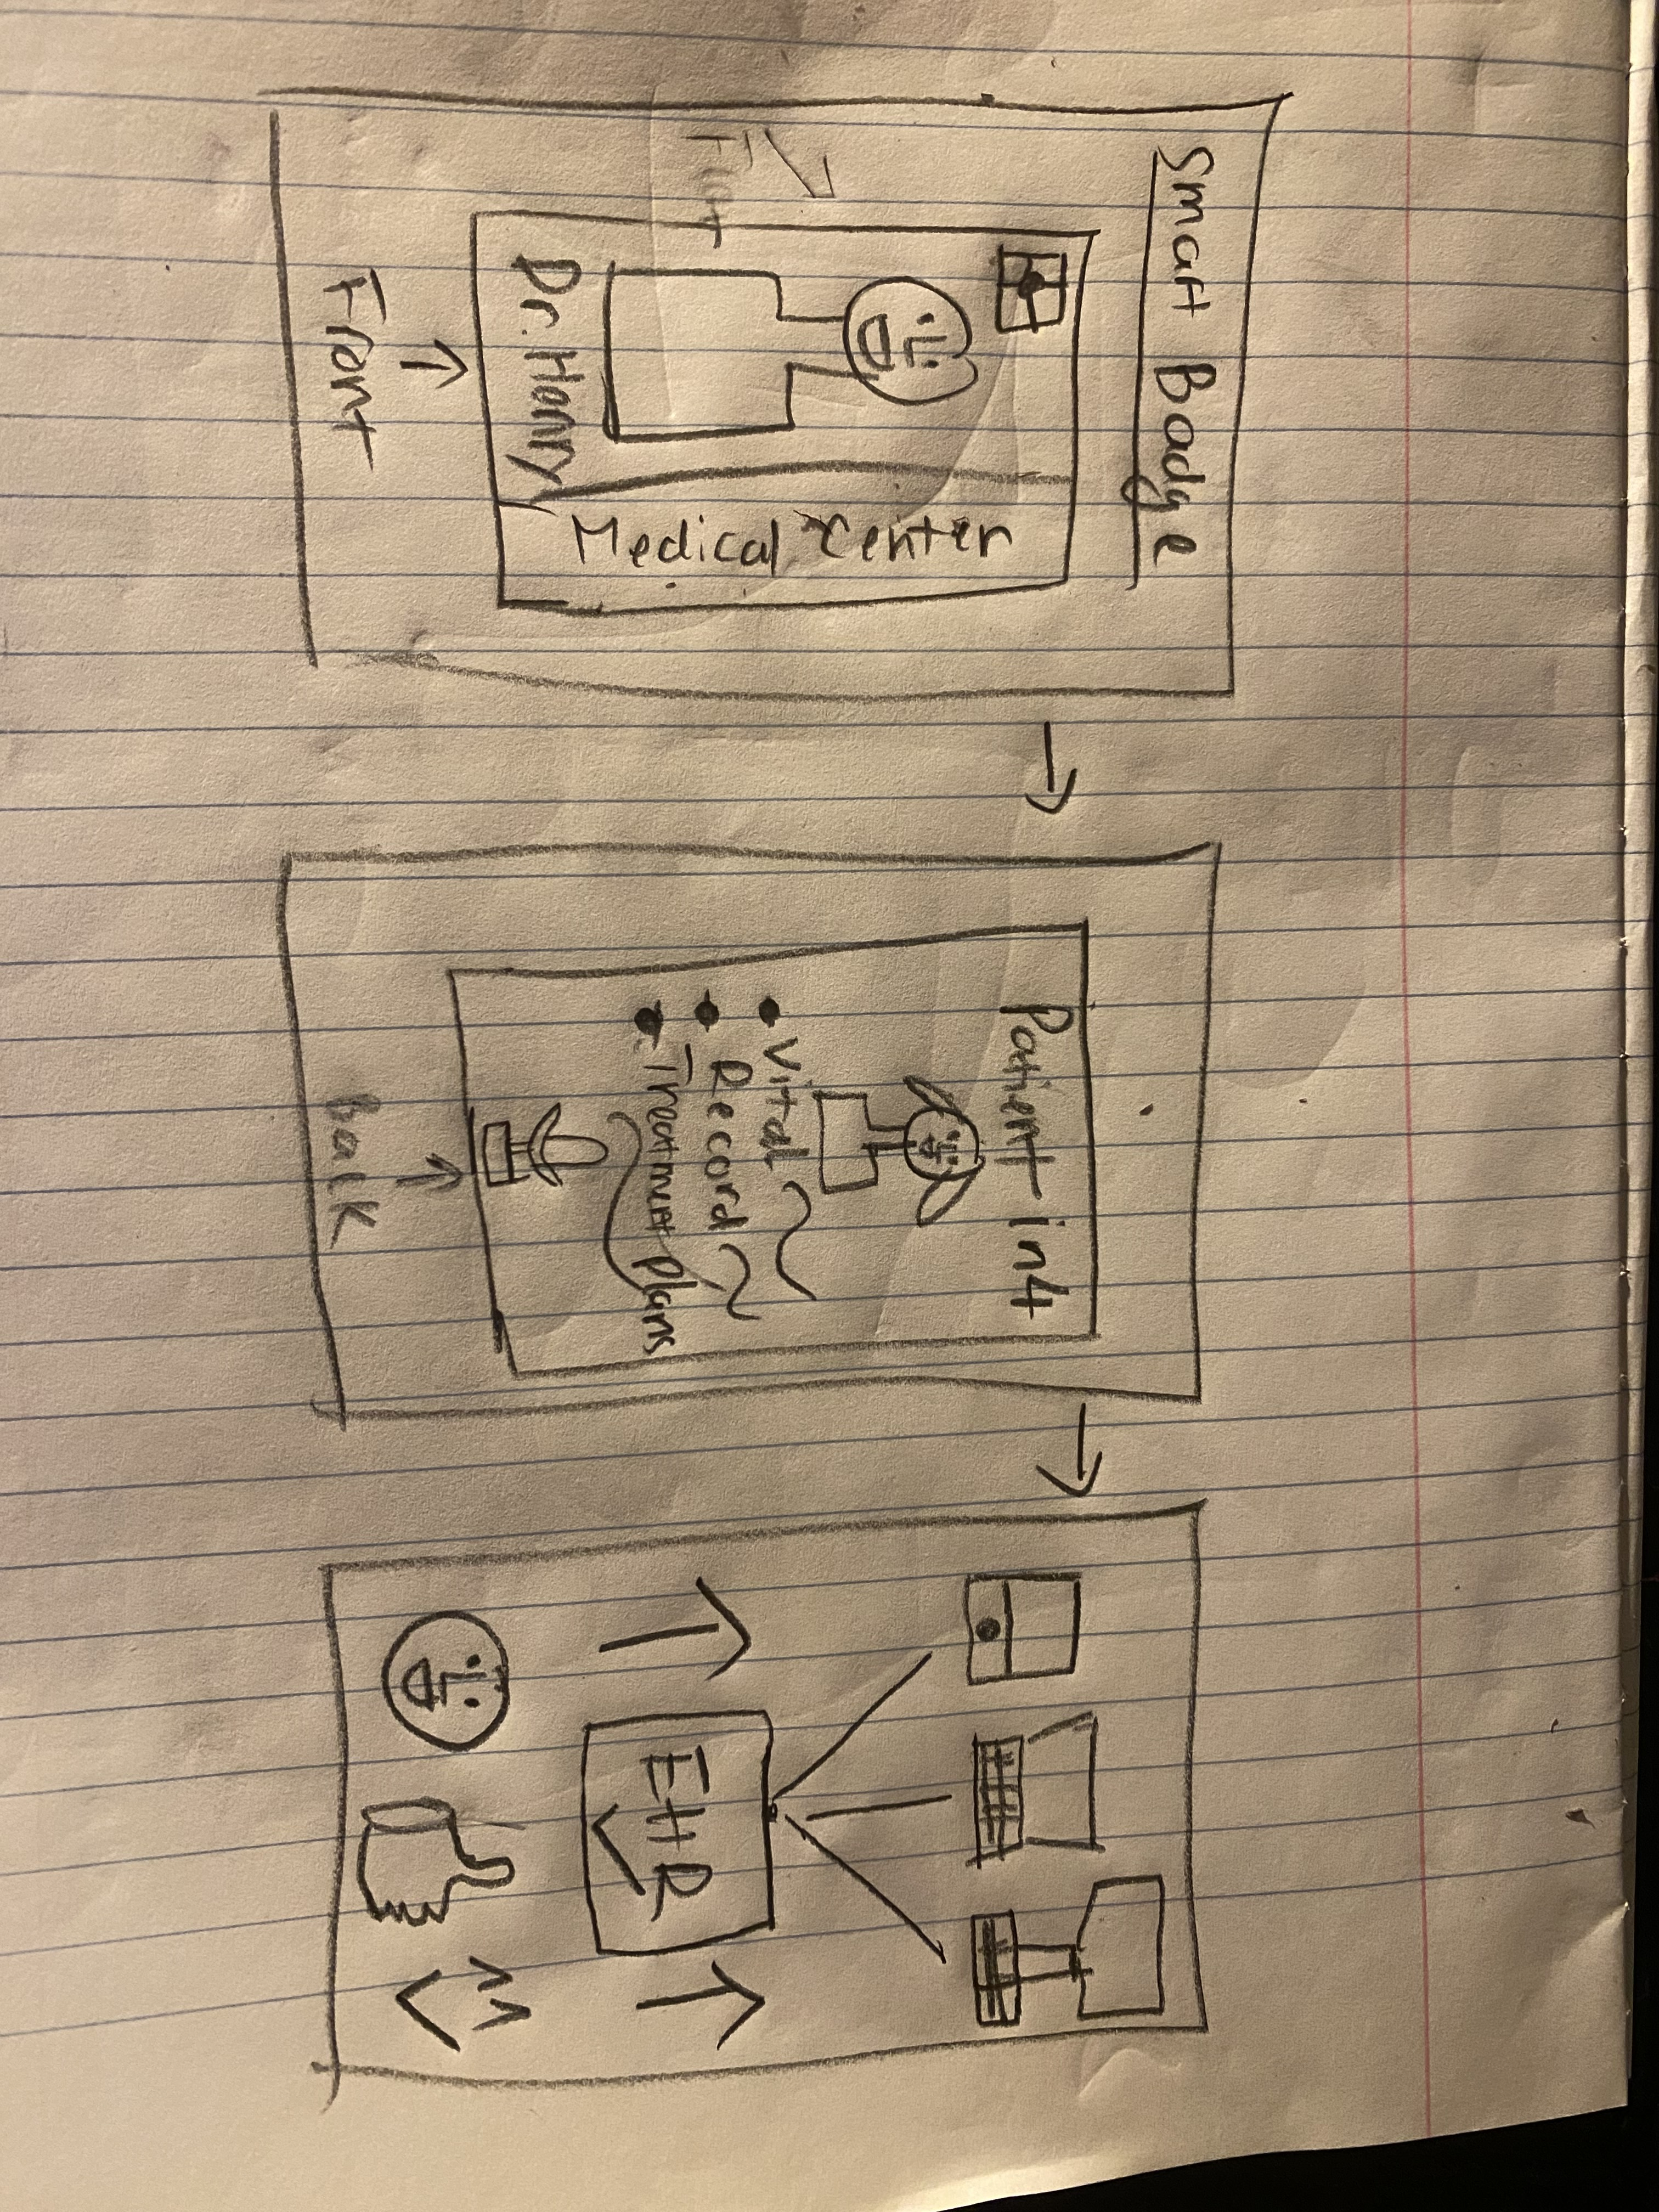 Smart Badge
Dr. Henry
Medical Center
Front
Patient in4
• Vital
• Record
• Treatment plans
back
EHR